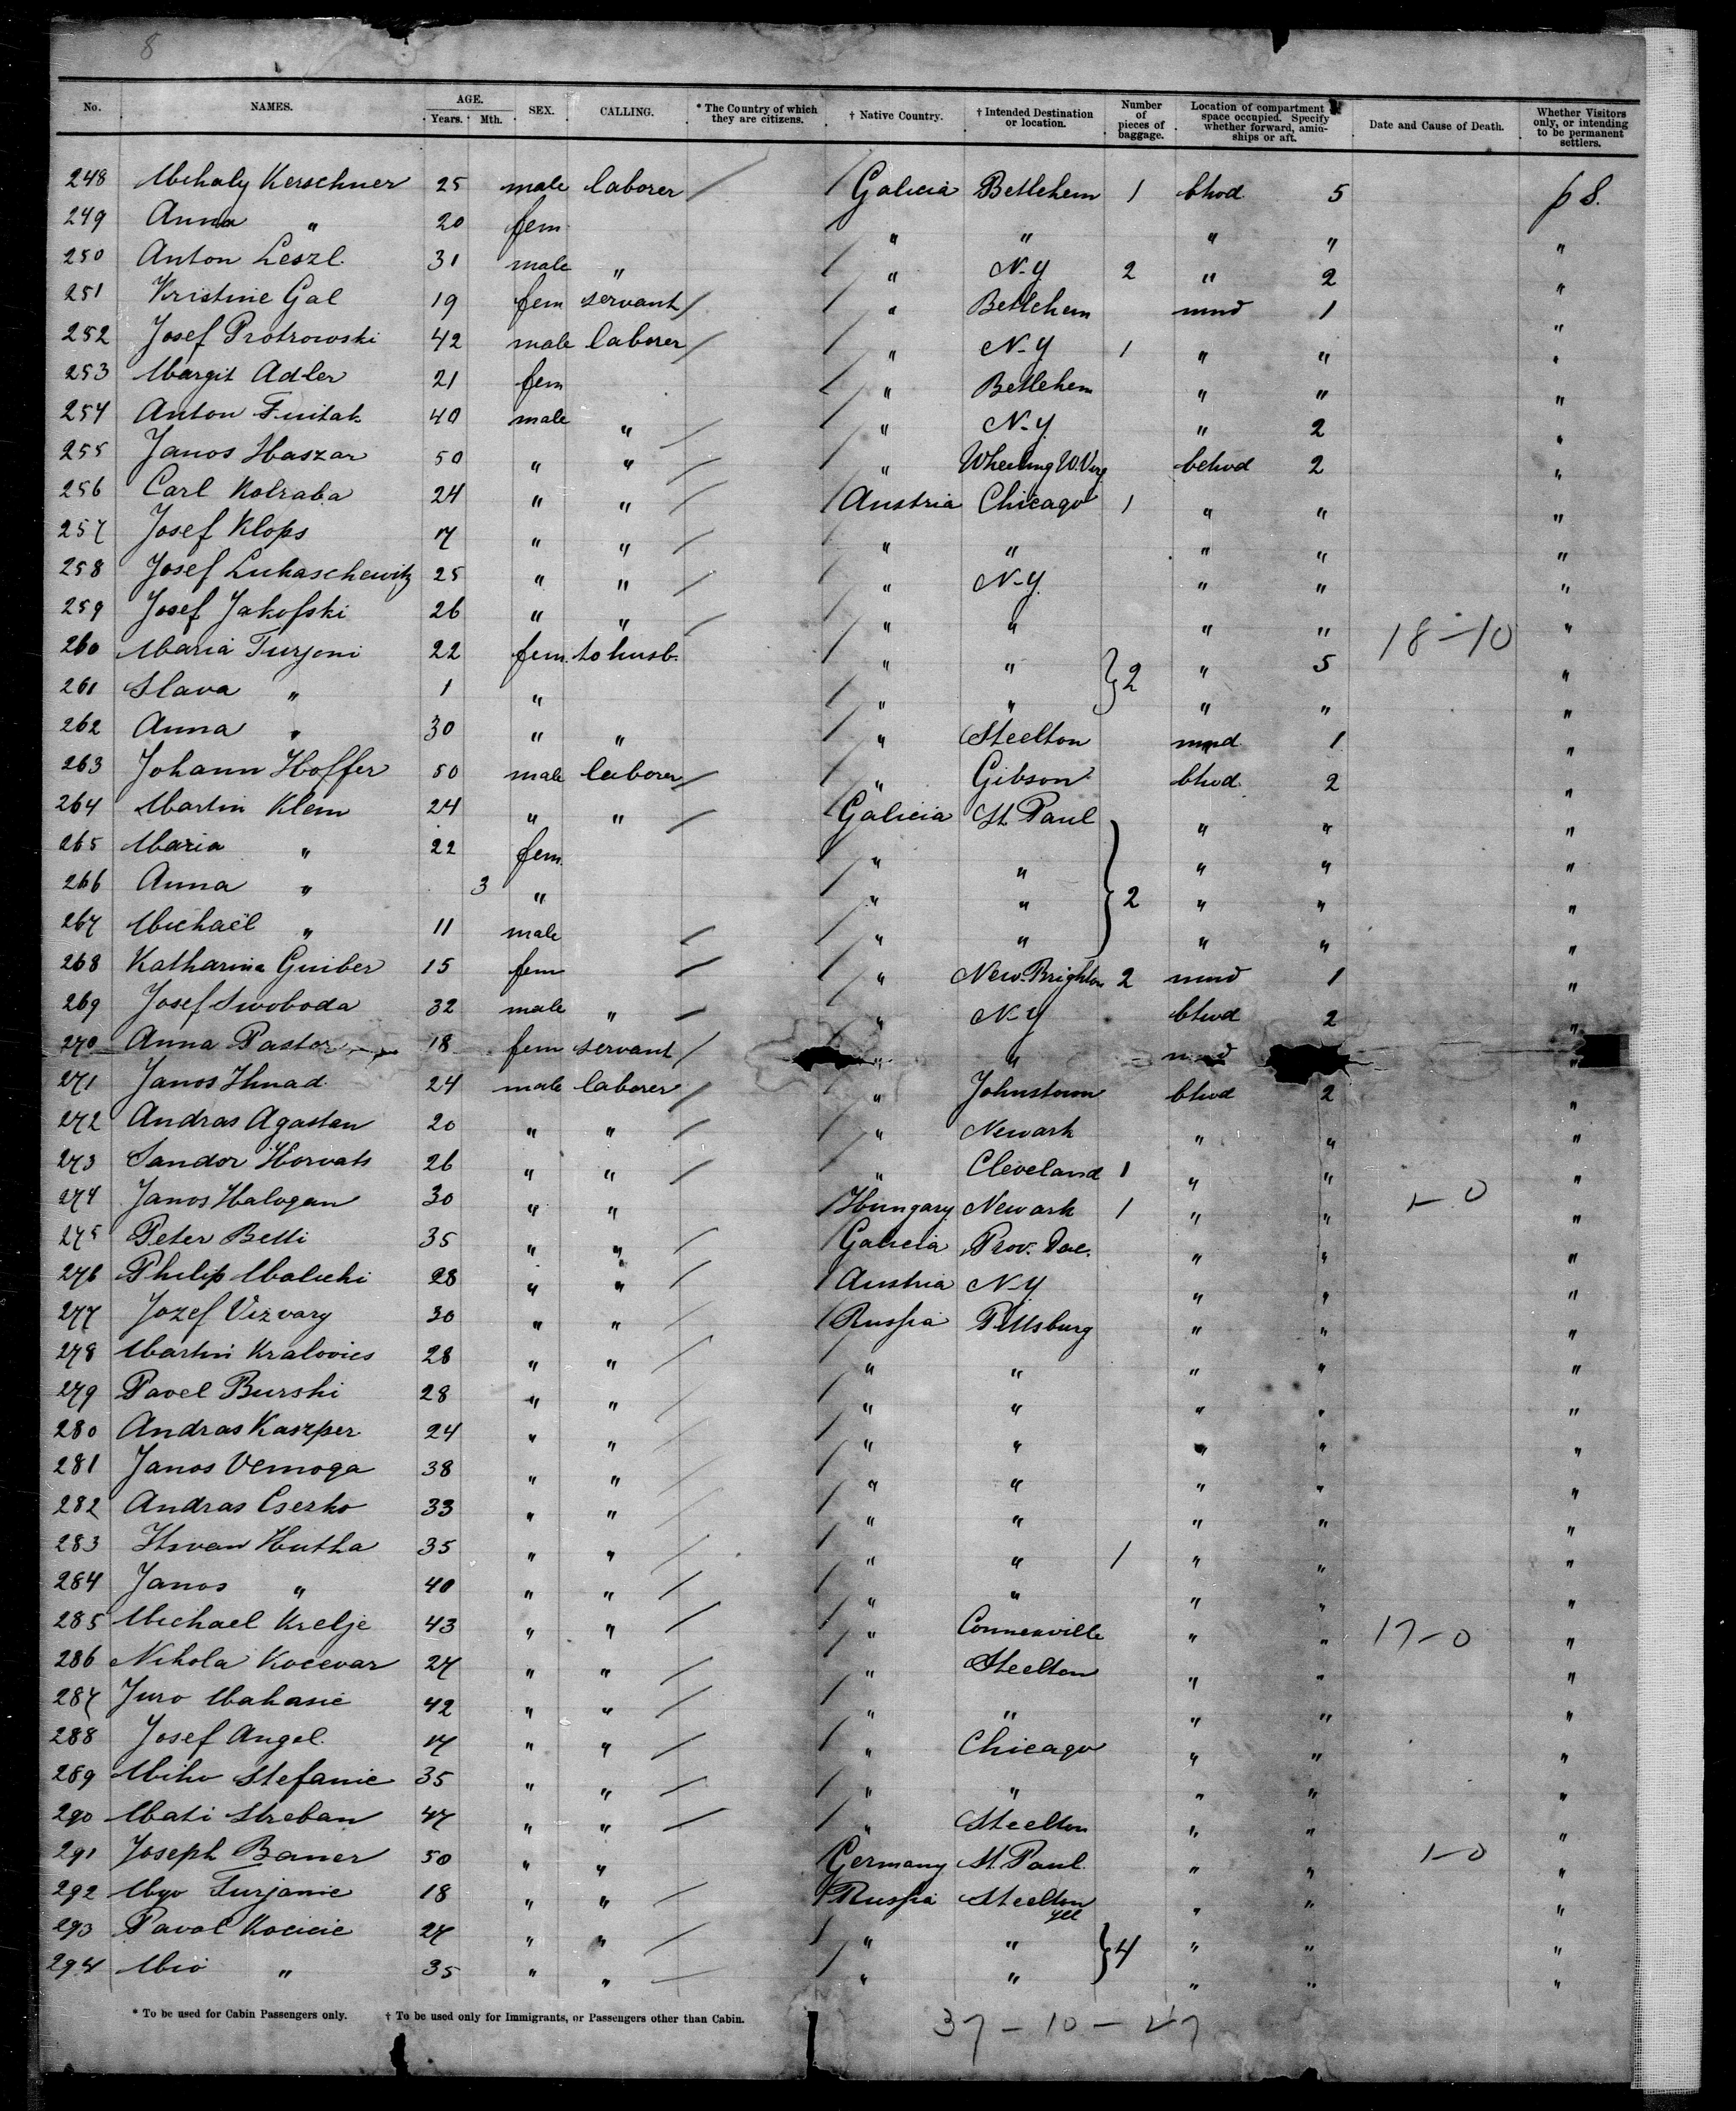 8
No. NAMES. AGE. Years. Mth. SEX. CALLING. * The Country of which they are citizens. † Native Country. † Intended Destination or location. Number of pieces of baggage. Location of compartment space occupied. Specify whether forward, amidships or aft. Date and Cause of Death. Whether Visitors only, or intending to be permanent settlers.
248 Mihaly Kerschner 25 male laborer / / Galicia Betlehem 1 bhwd 5 p S.
249 Anna " 20 fem / " " " " "
250 Anton Leszl. 31 male " / " N-Y 2 " 2 "
251 Kristine Gal 19 fem servant / / " Betlehem mwd 1 "
252 Josef Protrowski 42 male laborer / / " N-Y 1 " " "
253 Margit Adler 21 fem / " Betlehem " " "
254 Anton 40 male " / / " N-Y. " 2 "
255 Janos Haszar 50 " " / / " Wheeling W. Virg behwd 2 "
256 Carl Kolraba 24 " " / / Austria Chicago 1 " " "
257 Josef Klops 17 " " / / " " " " "
258 Josef Lukaschewitz 25 " " / / " N-Y. " " "
259 Josef Jakofski 26 " " / / " " " " "
260 Maria Turjoni 22 fem. to husb. / " " } 2 " 5 18-10 "
261 Slava " 1 " / " " " " "
262 Anna " 30 " " / " Steelton mwd 1 "
263 Johann Hoffer 50 male laborer / / " Gibson bhwd. 2 "
264 Martin Klem 24 " " / / Galicia St. Paul } 2 " " "
265 Maria " 22 fem. / " " " " "
266 Anna " 3 " / " " " " "
267 Michaël " 11 male / / " " " " "
268 Katharina Guiber 15 fem / / " New-Brighton 2 mwd 1 "
269 Josef Swoboda 32 male " / / " N-Y bhwd 2 "
270 Anna Pastor 18 fem servant / " " "
271 Janos Hnad 24 male laborer / / " Johnstown bhwd 2 "
272 Andras Agastan 20 " " / / " Newark " " "
273 Sandor Horvath 26 " " / / " Cleveland 1 " " "
274 Janos Halogan 30 " " / Hungary Newark 1 " " 1-0 "
275 Peter Betti 35 " " / / Galicia Prov. " " "
276 Philip Malicki 28 " " / / Austria N-Y " " "
277 Jozef Vizvary 30 " " / / Russia Pittsburg " " "
278 Martin Kralovics 28 " " / / " " " " "
279 Pavel Burski 28 " " / / " " " " "
280 Andras Kaszper 24 " " / / " " " " "
281 Janos Vernoga 38 " " / / " " " " "
282 Andras Cserko 33 " " / / " " " " "
283 Hutka 35 " " / / " " 1 " " "
284 Janos " 40 " " / / " " " " "
285 Michael Krelje 43 " " / / " Connenville " " 17-0 "
286 Nikola Kocevar 27 " " / / " Steelton " " "
287 Juro Makasic 42 " " / / " " " " "
288 Josef Angel. 17 " " / / " Chicago " " "
289 Miko Stefanic 35 " " / / " " " " "
290 Mati Streban 47 " " / / " Steelton " " "
291 Joseph Baner 50 " " / Germany St. Paul. " " 1-0 "
292 Mijo Turjanic 18 " " / / Russia Steelton " " "
293 Paval Kocicic 27 " " / / " " } 4 " " "
294 Mio " 35 " " / / " " " " "
* To be used for Cabin Passengers only. † To be used only for Immigrants, or Passengers other than Cabin.
37-10-47